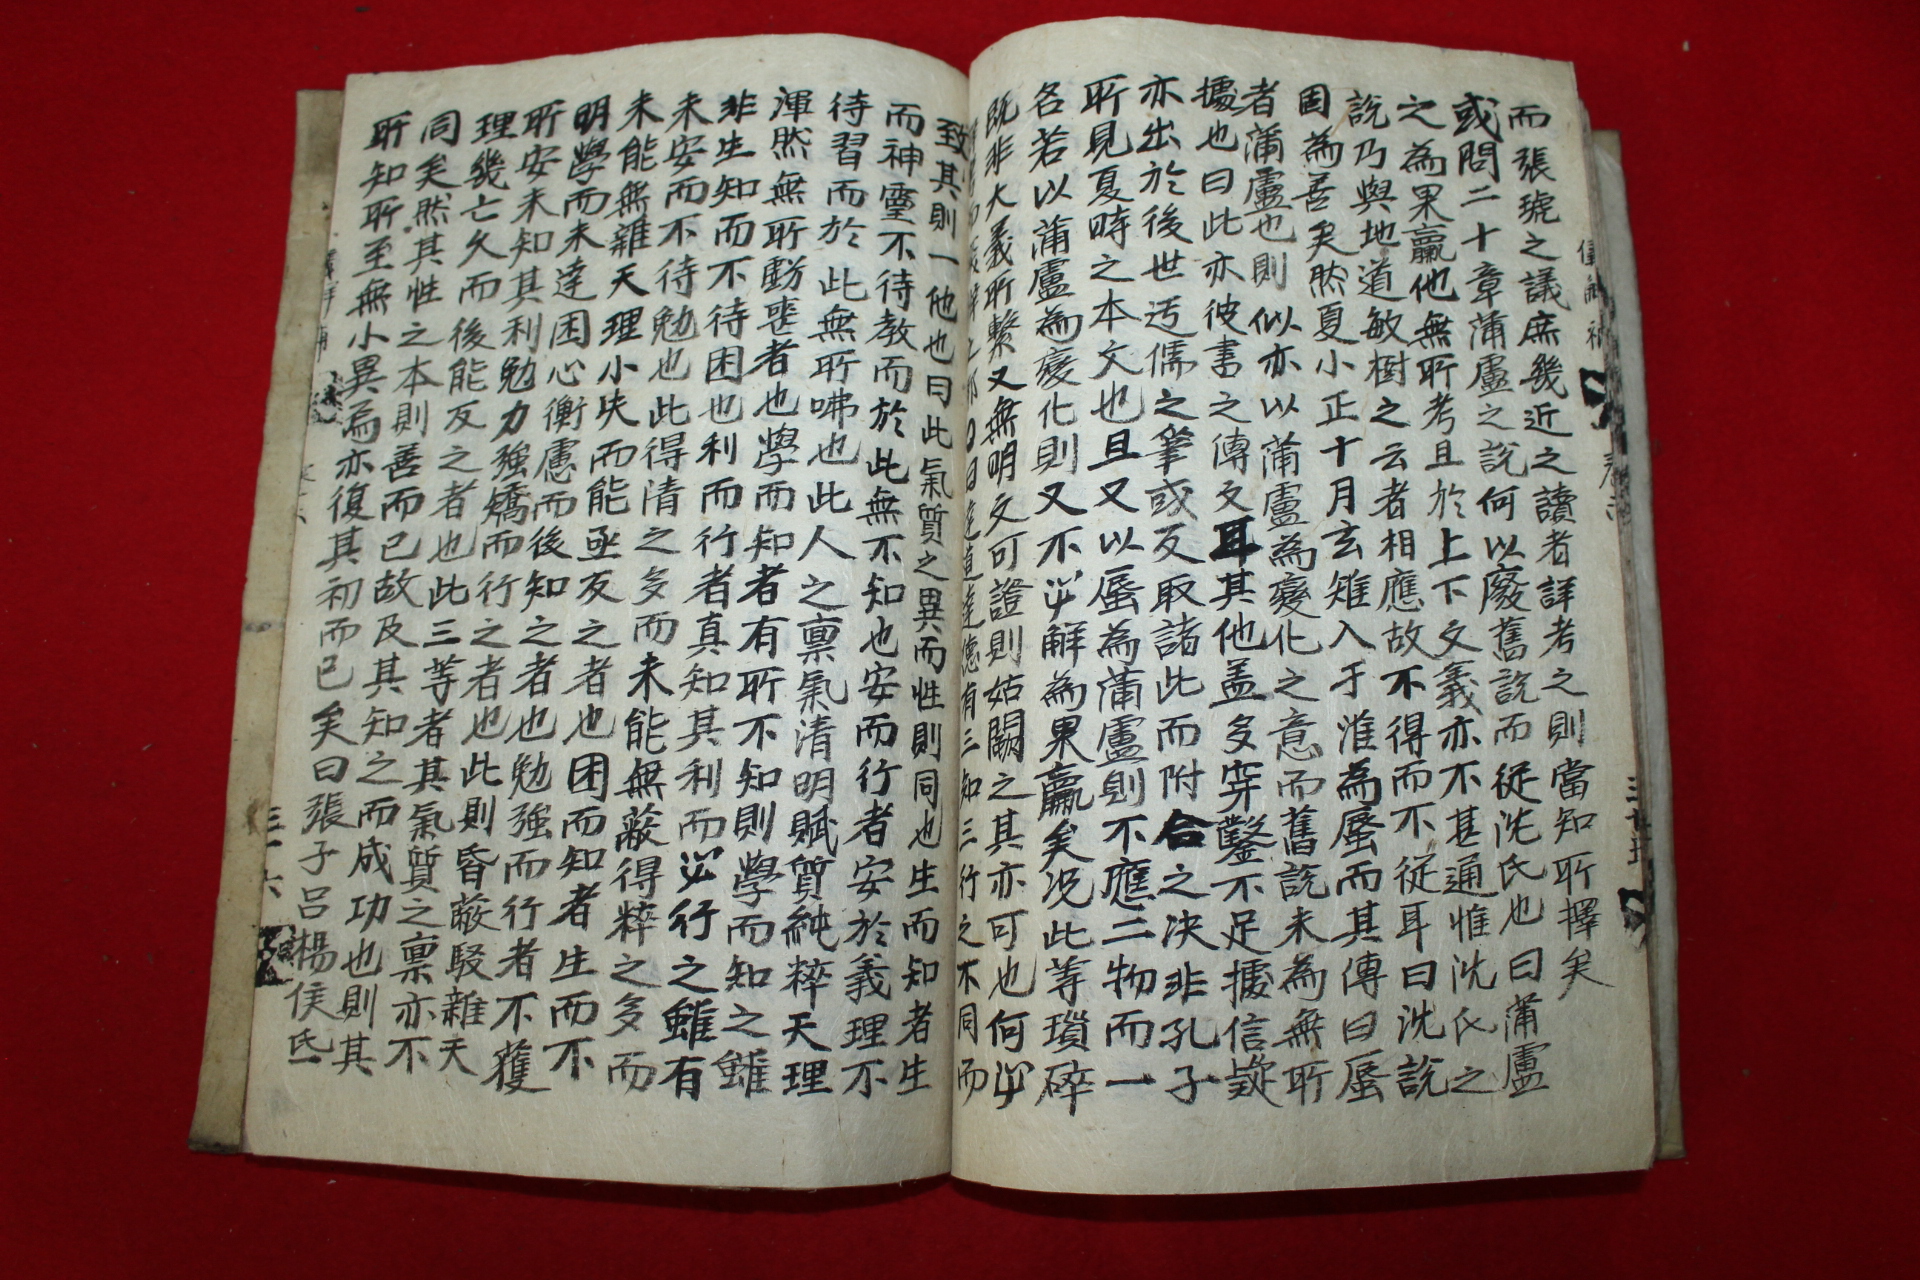 而張琥之議庶幾近之讀者詳考之則當知所擇矣
或問二十章蒲盧之說何以廢舊說而從沈氏也曰蒲盧
之為果臝他無所考且於上下文義亦不甚通惟沈氏之
說乃與地道敏樹之云者相應故不得而不從耳曰沈說
固為善矣然夏小正十月玄雉入于淮為蜃而其傳曰蜃
者蒲盧也則似亦以蒲盧為變化之意而舊說未為無所
據也曰此亦彼書之傳文耳其他蓋多穿鑿不足據信疑
亦出於後世迂儒之筆或反取諸此而附合之决非孔子
所見夏時之本文也且又以蜃為蒲盧則不應二物而一
名若以蒲盧為變化則又不必解為果臝矣况此等瑣碎
既非大義所繫又無明文可證則姑闕之其亦可也何必
之耶曰達道達德有三知三行之不同而
致其則一他也曰此氣質之異而性則同也生而知者生
而神靈不待教而於此無不知也安而行者安於義理不
待習而於此無所咈也此人之稟氣清明賦質純粹天理
渾然無所虧喪者也學而知者有所不知則學而知之雖
非生知而不待困也利而行者真知其利而必行之雖有
未安而不待勉也此得清之多而未能無蔽得粹之多而
未能無雜天理小失而能亟反之者也困而知者生而不
明學而未達困心衡慮而後知之者也勉強而行者不獲
所安未知其利勉力強矯而行之者也此則昏蔽駁雜天
理幾亡久而後能反之者也此三等者其氣質之稟亦不
同矣然其性之本則善而已故及其知之而成功也則其
所知所至無小異焉亦復其初而已矣曰張子呂楊侯氏
三十六